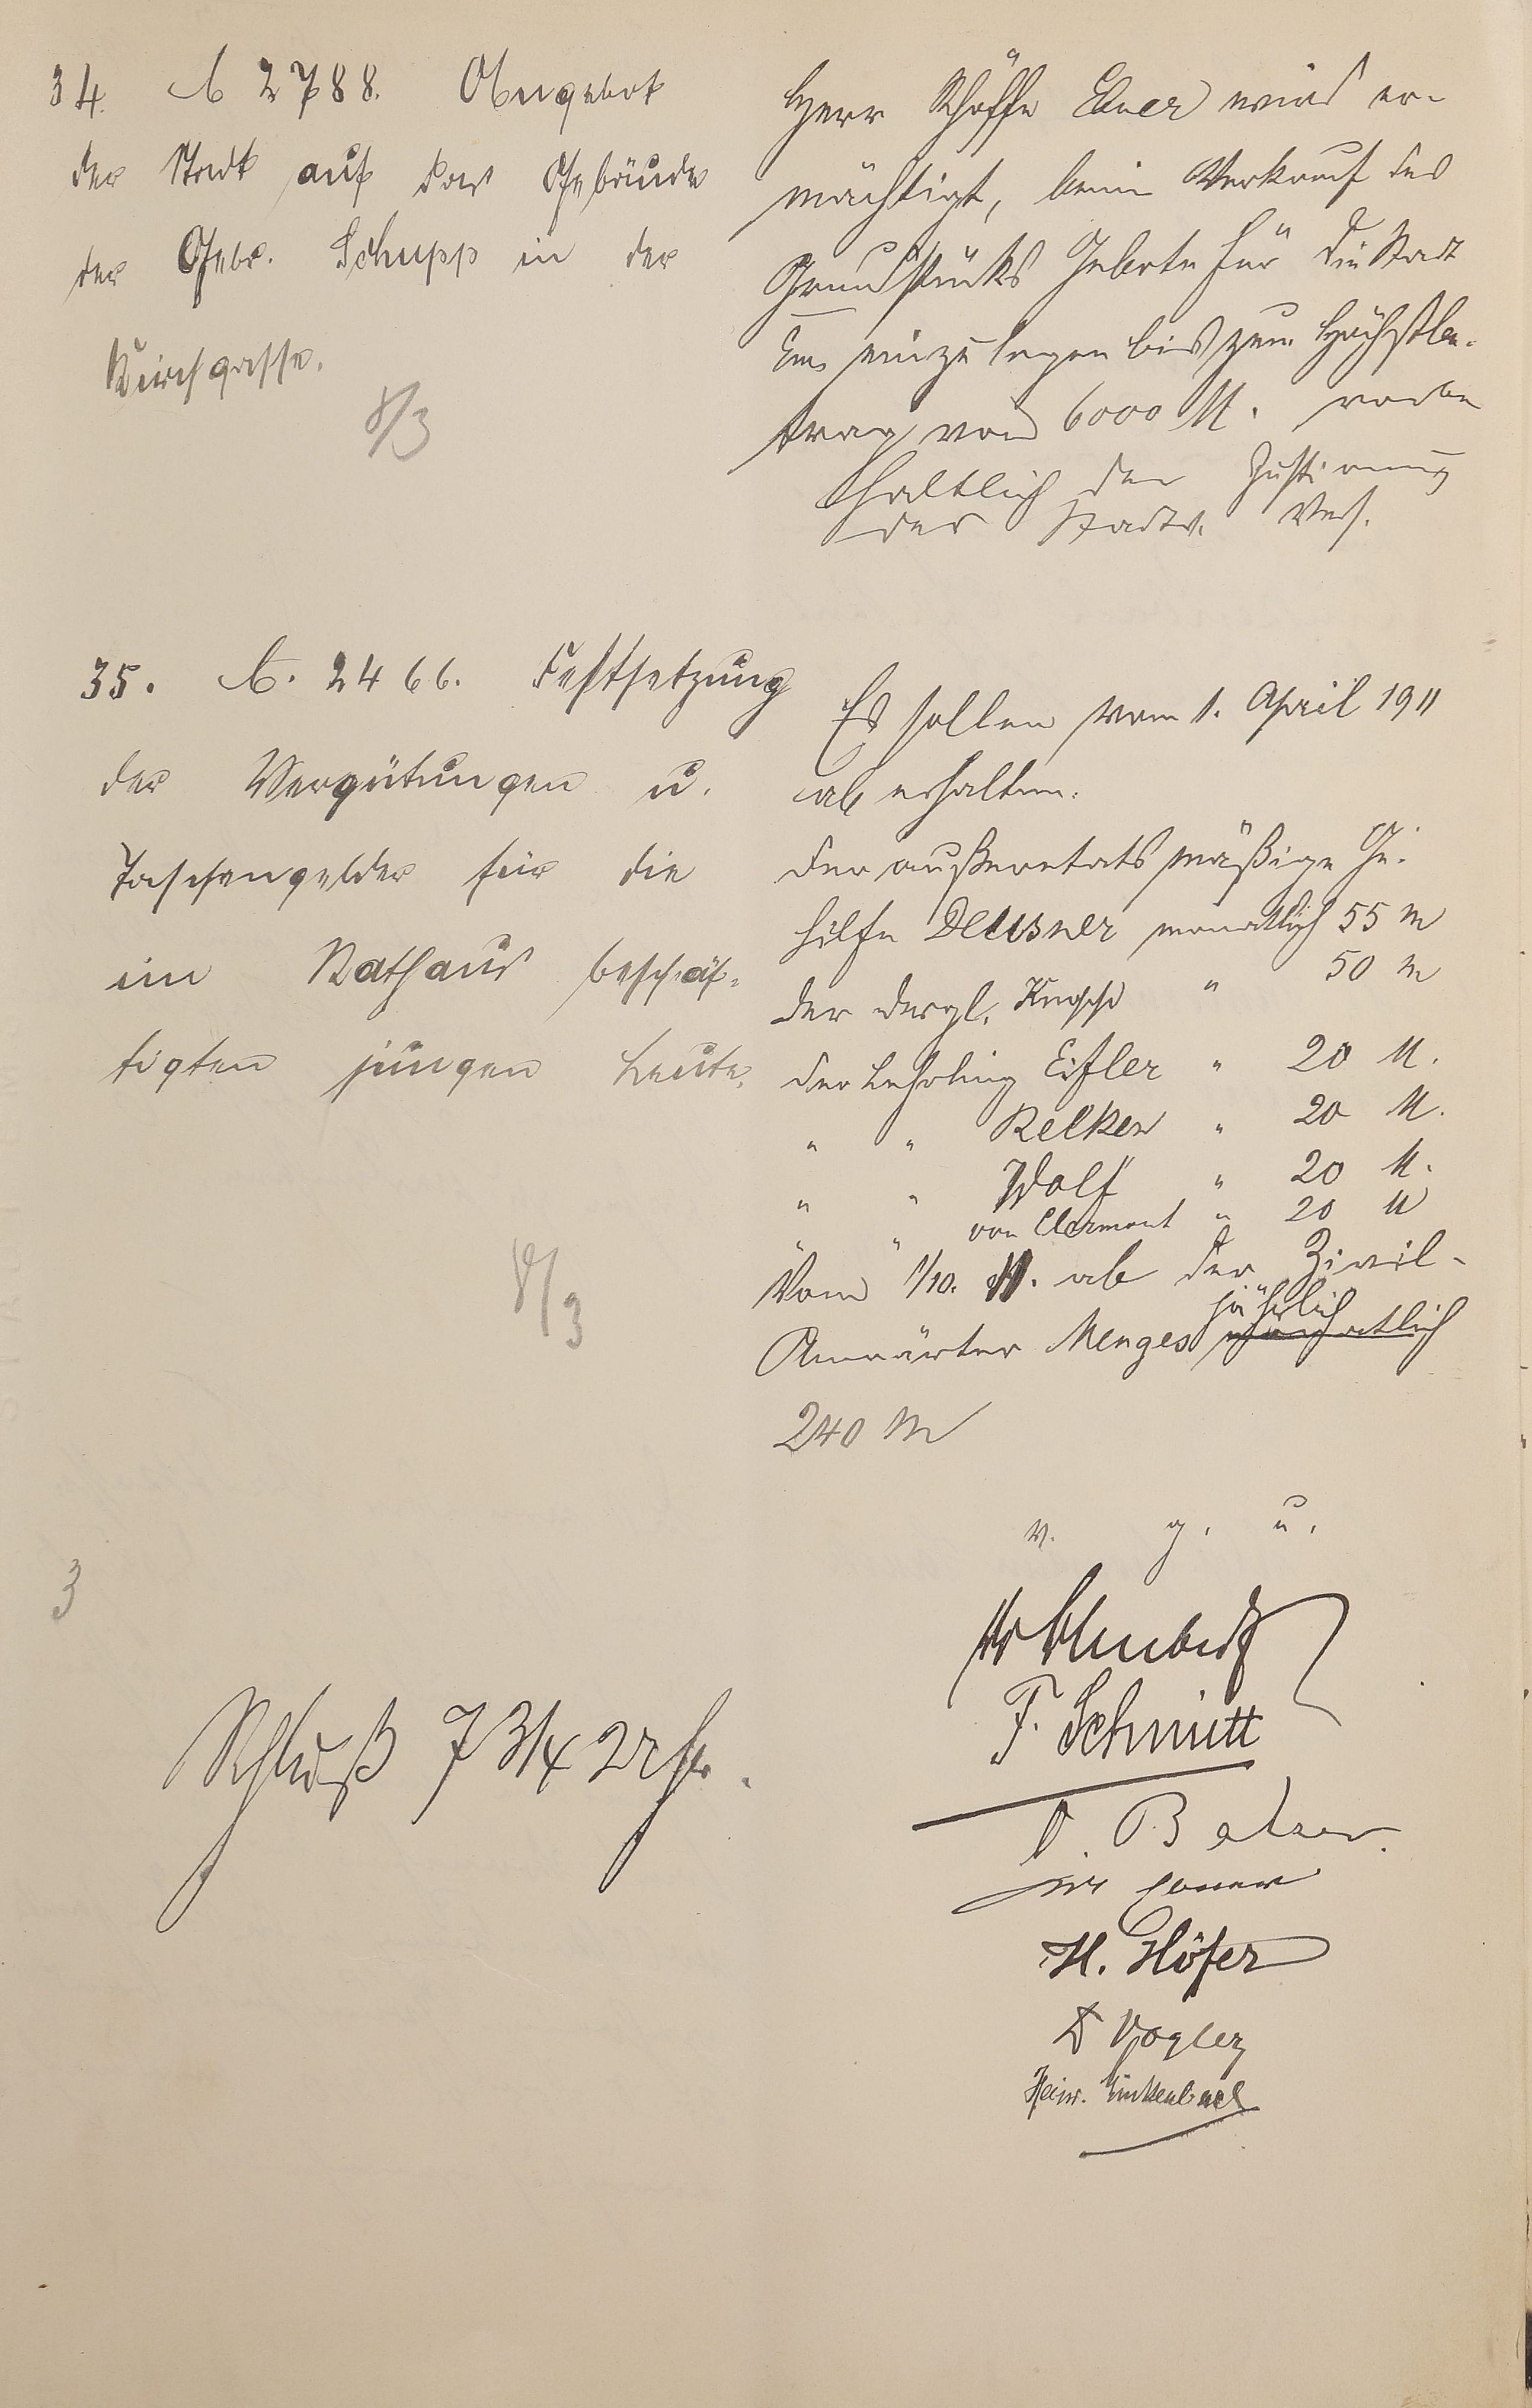 34. A 2788. Angebot
der Stadt auf das Gebäude
der Gebr. Schupp in der
Kirchgasse.
8/3
Herr Schöffe Ebner wird er-
mächtigt, beim Verkauf des
Grundstücks Gebote für die Stadt
Ems einzulegen bis zum Höchstbe-
trag von 6000 M. vorbe
haltlich der Zustimmung
der Stadtv. Vers.
35. A. 2466. Festsetzung
der Vergütungen u.
Taschengelder für die
im Rathaus beschäf-
tigten jungen Leute.
8/3
Es sollen vom 1. April 1911
ab erhalten:
der außeretatsmäßige Ge-
hilfe Deusner monatlich 55 M
der dergl. " 50 M
der Lehrling Eifler " 20 M.
" " Relken " 20 M.
" " Wolf " 20 M.
" " von Clermont " 20 M
Vom 1/10. 11. ab der Zivil-
jährlich
Anwärter Menges monatlich
240 M
v. g. u.
3
Schluß 7 3/4 Uhr.
F. Schmitt
Balzer
H. Höfer
Vogler
Heinr. Linkenbach